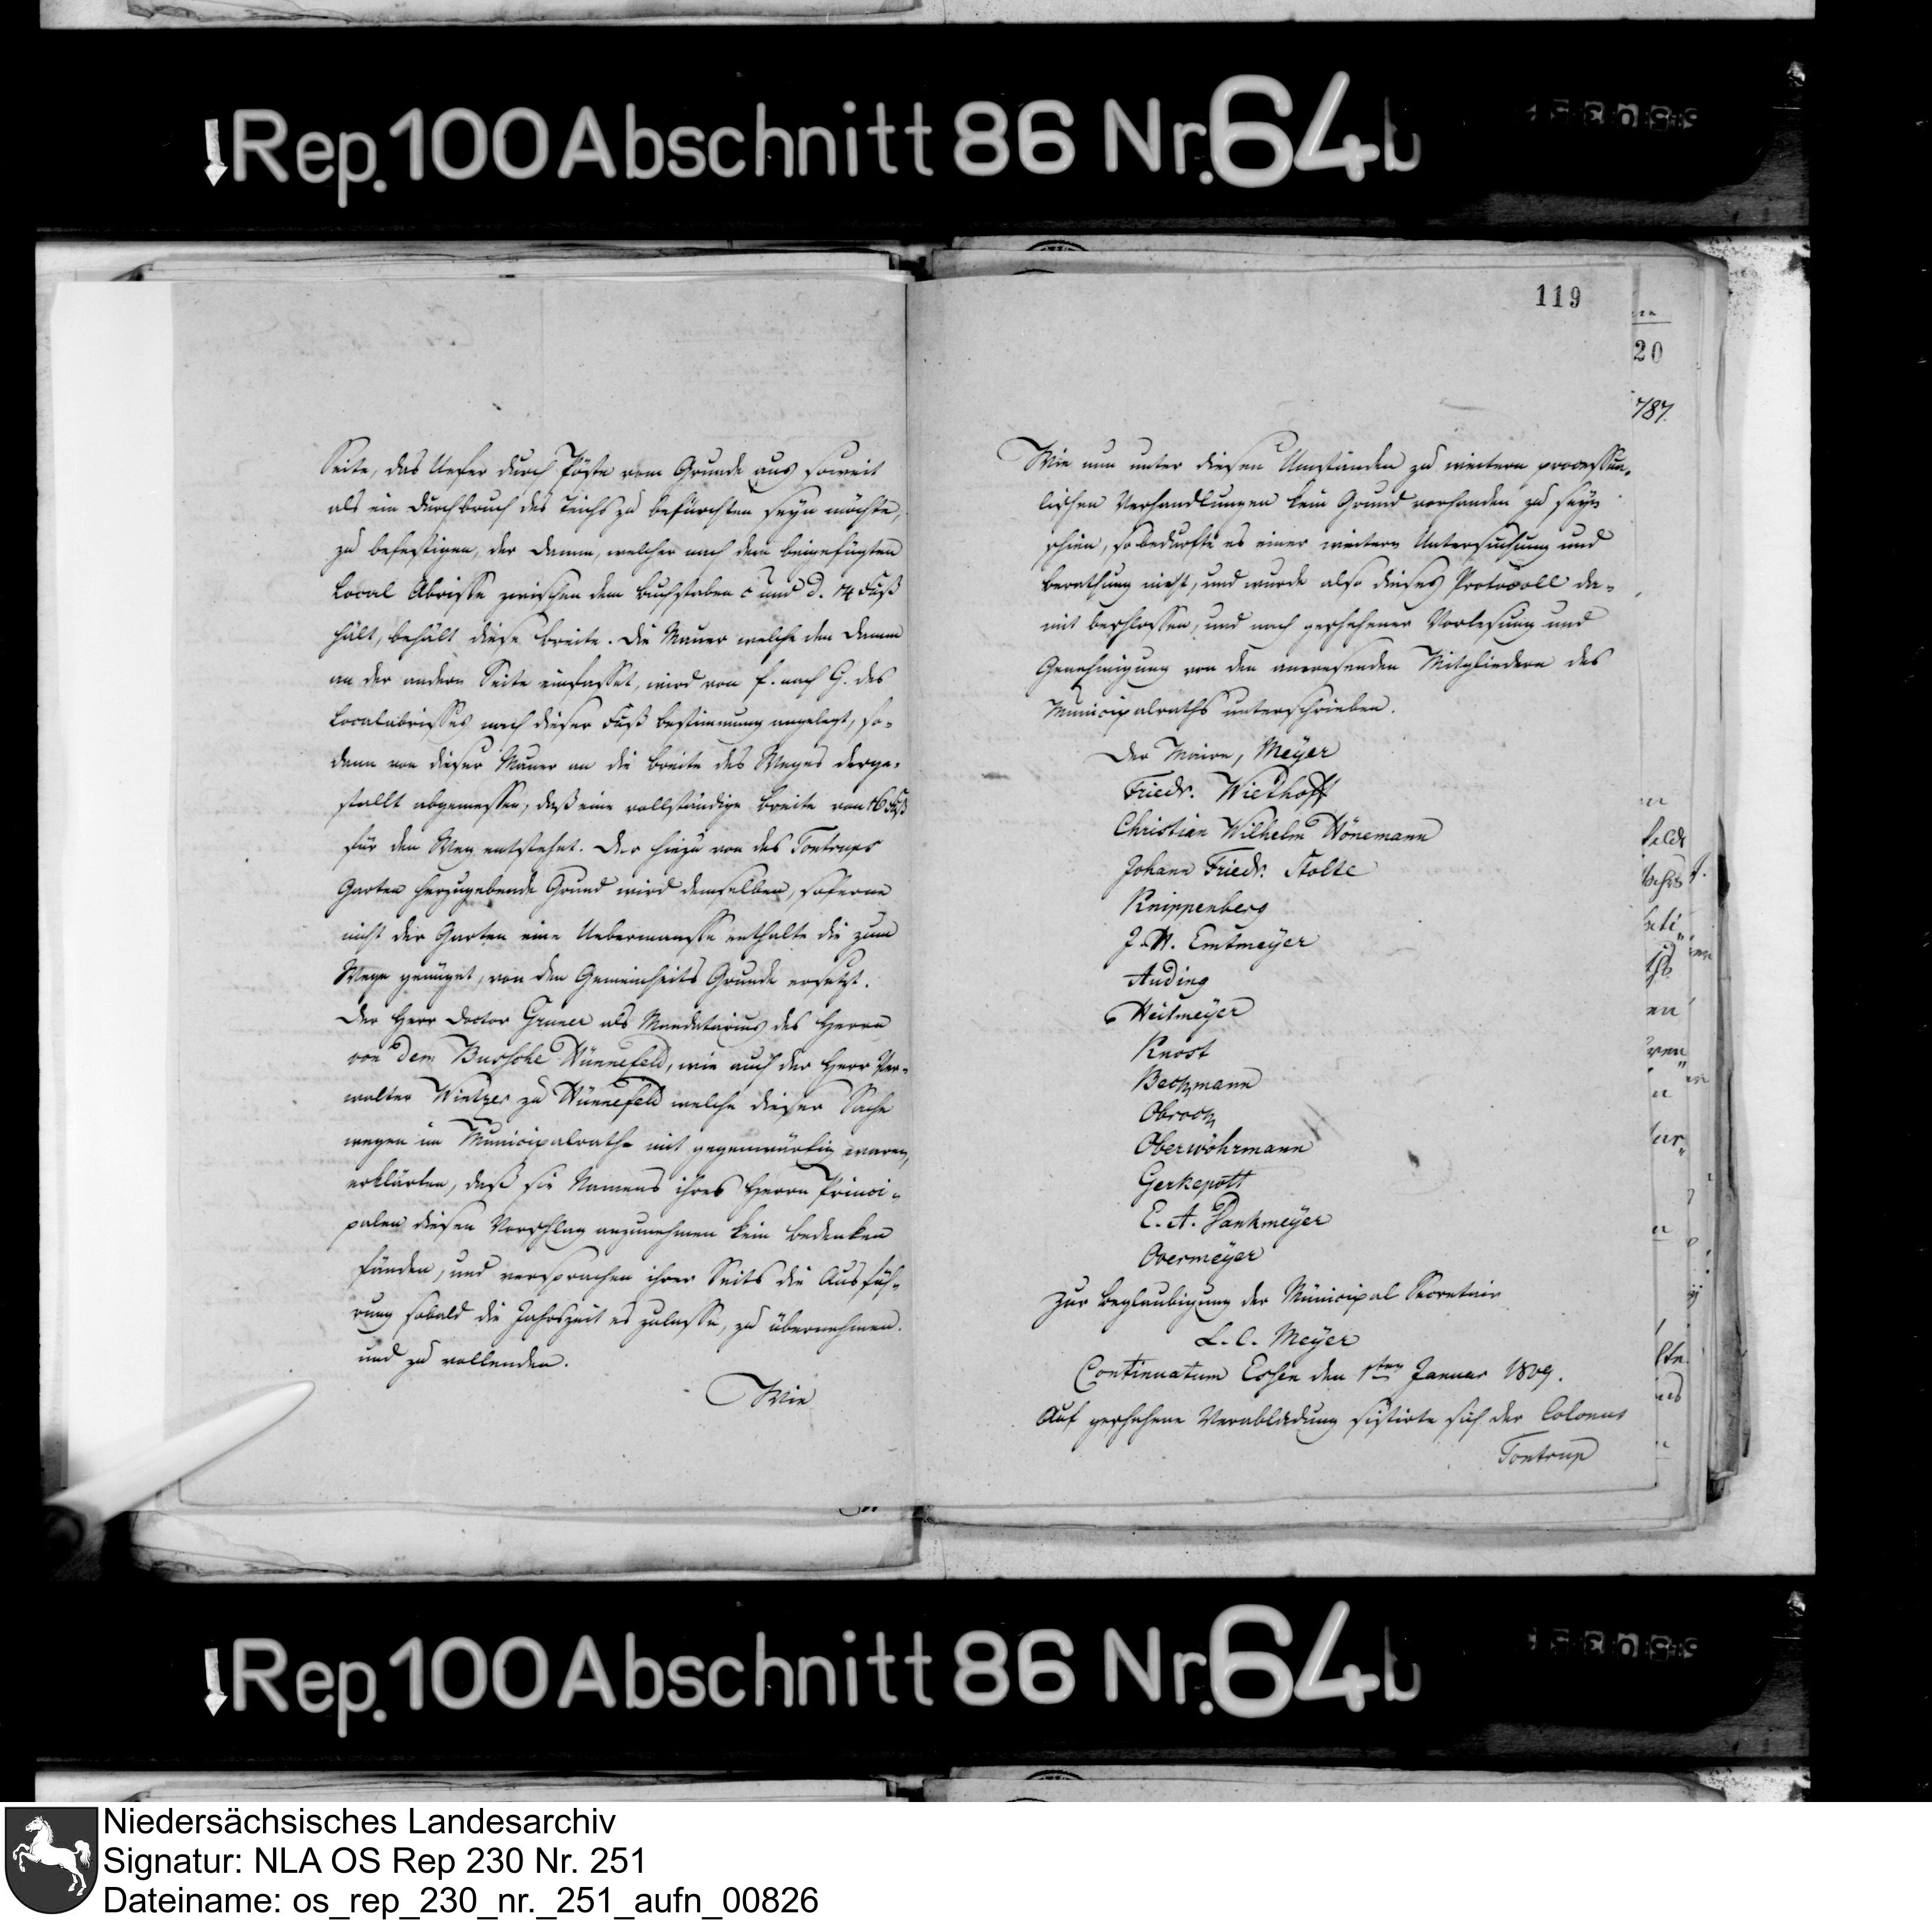 Rep. 100 Abschnitt 86 Nr. 64b
Seite, das Uefer durch Pöste vom Grunde aus soweit
als ein Durchbruch des Teichs zu befürchten seyn möchte,
zu befestigen, der Damm, welcher nach dem beigefügten
Local Abrisse zwischen dem Buchstaben c und d. 14 Fuß
hält, behält diese Breite. Die Mauer welche den Damm
an der andern Seite einfasset, wird von f. nach G. des
Localabrisses nach dieser Fuß Bestimmung angelegt, so-
dann von dieser Mauer an die Breite des Weges derge-
stallt abgemessen, daß eine vollständige Breite von 16 Fuß
für den Weg entstehet. Der hiezu von des Tontrups
Garten herzugebende Grund wird demselben, soferne
nicht der Garten eine Uebermaasse enthalte die zum
Wege genüget, von den Gemeinheits Grunde ersetzt.
Der Herr Doctor Gruner als Mandatarius des Herrn
von dem Bussche Hünnefeld, wie auch der Herr Ver-
walter Wintzer zu Hünnefeld welche dieser Sache
wegen im Municipalrathe mit gegenwärtig waren,
erklärten, daß sie Namens ihres Herrn Princi-
palen diesen Vorschlag anzunehmen kein Bedenken
fänden, und versprachen ihrer Seits die Ausfüh-
rung sobald die Jahrszeit es zulasse, zu übernehmen.
und zu vollenden.
Wie
119
20
787.
Wie nun unter diesen Umständen zu weitern processua-
lischen Verhandlungen kein Grund vorhanden zu seyn
schien, so bedurfte es einer weitern Untersuchung und
Berathung nicht, und wurde also dieses Protocoll da-
mit beschlossen, und nach geschehener Vorlesung und
Genehmigung von den anwesenden Mitgliedern des
Municipalraths unterschrieben.
Der Maire, Meyer
Friedr. Wiethoff
Christian Wilhelm Hönemann
Johann Friedr. Stolte
Knippenberg
J. H. Emtmeyer
Auding
Heitmeyer
Knost
Beckmann
Obrock
Oberwöhrmann
Gerkepott
E. A. Dankmeyer
Overmeyer
Zur Beglaubigung der Municipal Secretair
L. C. Meyer
Continuatum Essen den 1sten Januar 1809.
Auf geschehene Verabladung sistirte sich der Colonus
Tontrup
Rep. 100 Abschnitt 86 Nr. 64b
Niedersächsisches Landesarchiv
Signatur: NLA OS Rep 230 Nr. 251
Dateiname: os_rep_230_nr._251_aufn_00826